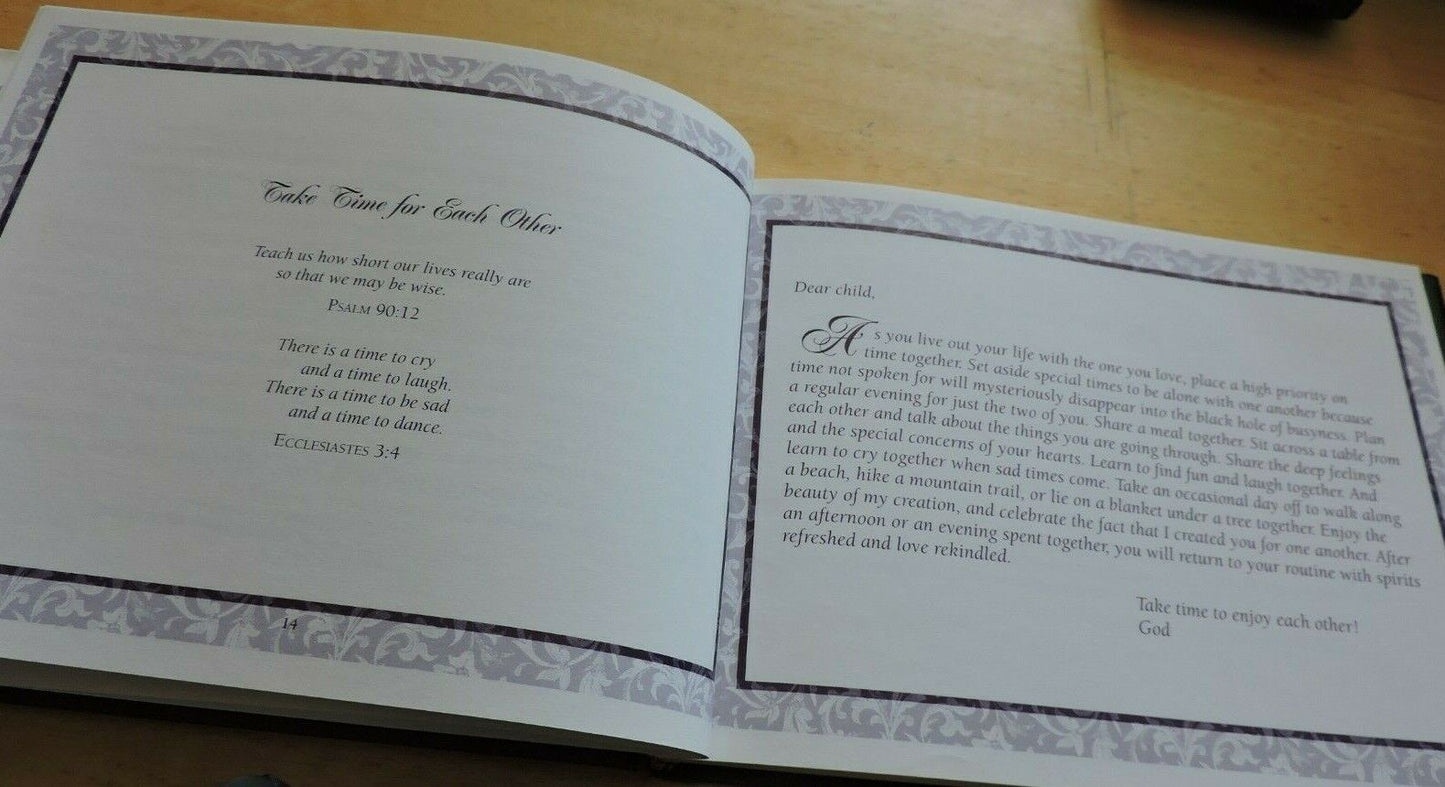 Take Time for Each Other
Teach us how short our lives really are
so that we may be wise.
PSALM 90:12
There is a time to cry
and a time to laugh.
There is a time to be sad
and a time to dance.
ECCLESIASTES 3:4
14
Dear child,
As you live out your life with the one you love, place a high priority on
time together. Set aside special times to be alone with one another because
time not spoken for will mysteriously disappear into the black hole of busyness. Plan
a regular evening for just the two of you. Share a meal together. Sit across a table from
each other and talk about the things you are going through. Share the deep feelings
and the special concerns of your hearts. Learn to find fun and laugh together. And
learn to cry together when sad times come. Take an occasional day off to walk along
a beach, hike a mountain trail, or lie on a blanket under a tree together. Enjoy the
beauty of my creation, and celebrate the fact that I created you for one another. After
an afternoon or an evening spent together, you will return to your routine with spirits
refreshed and love rekindled.
Take time to enjoy each other!
God